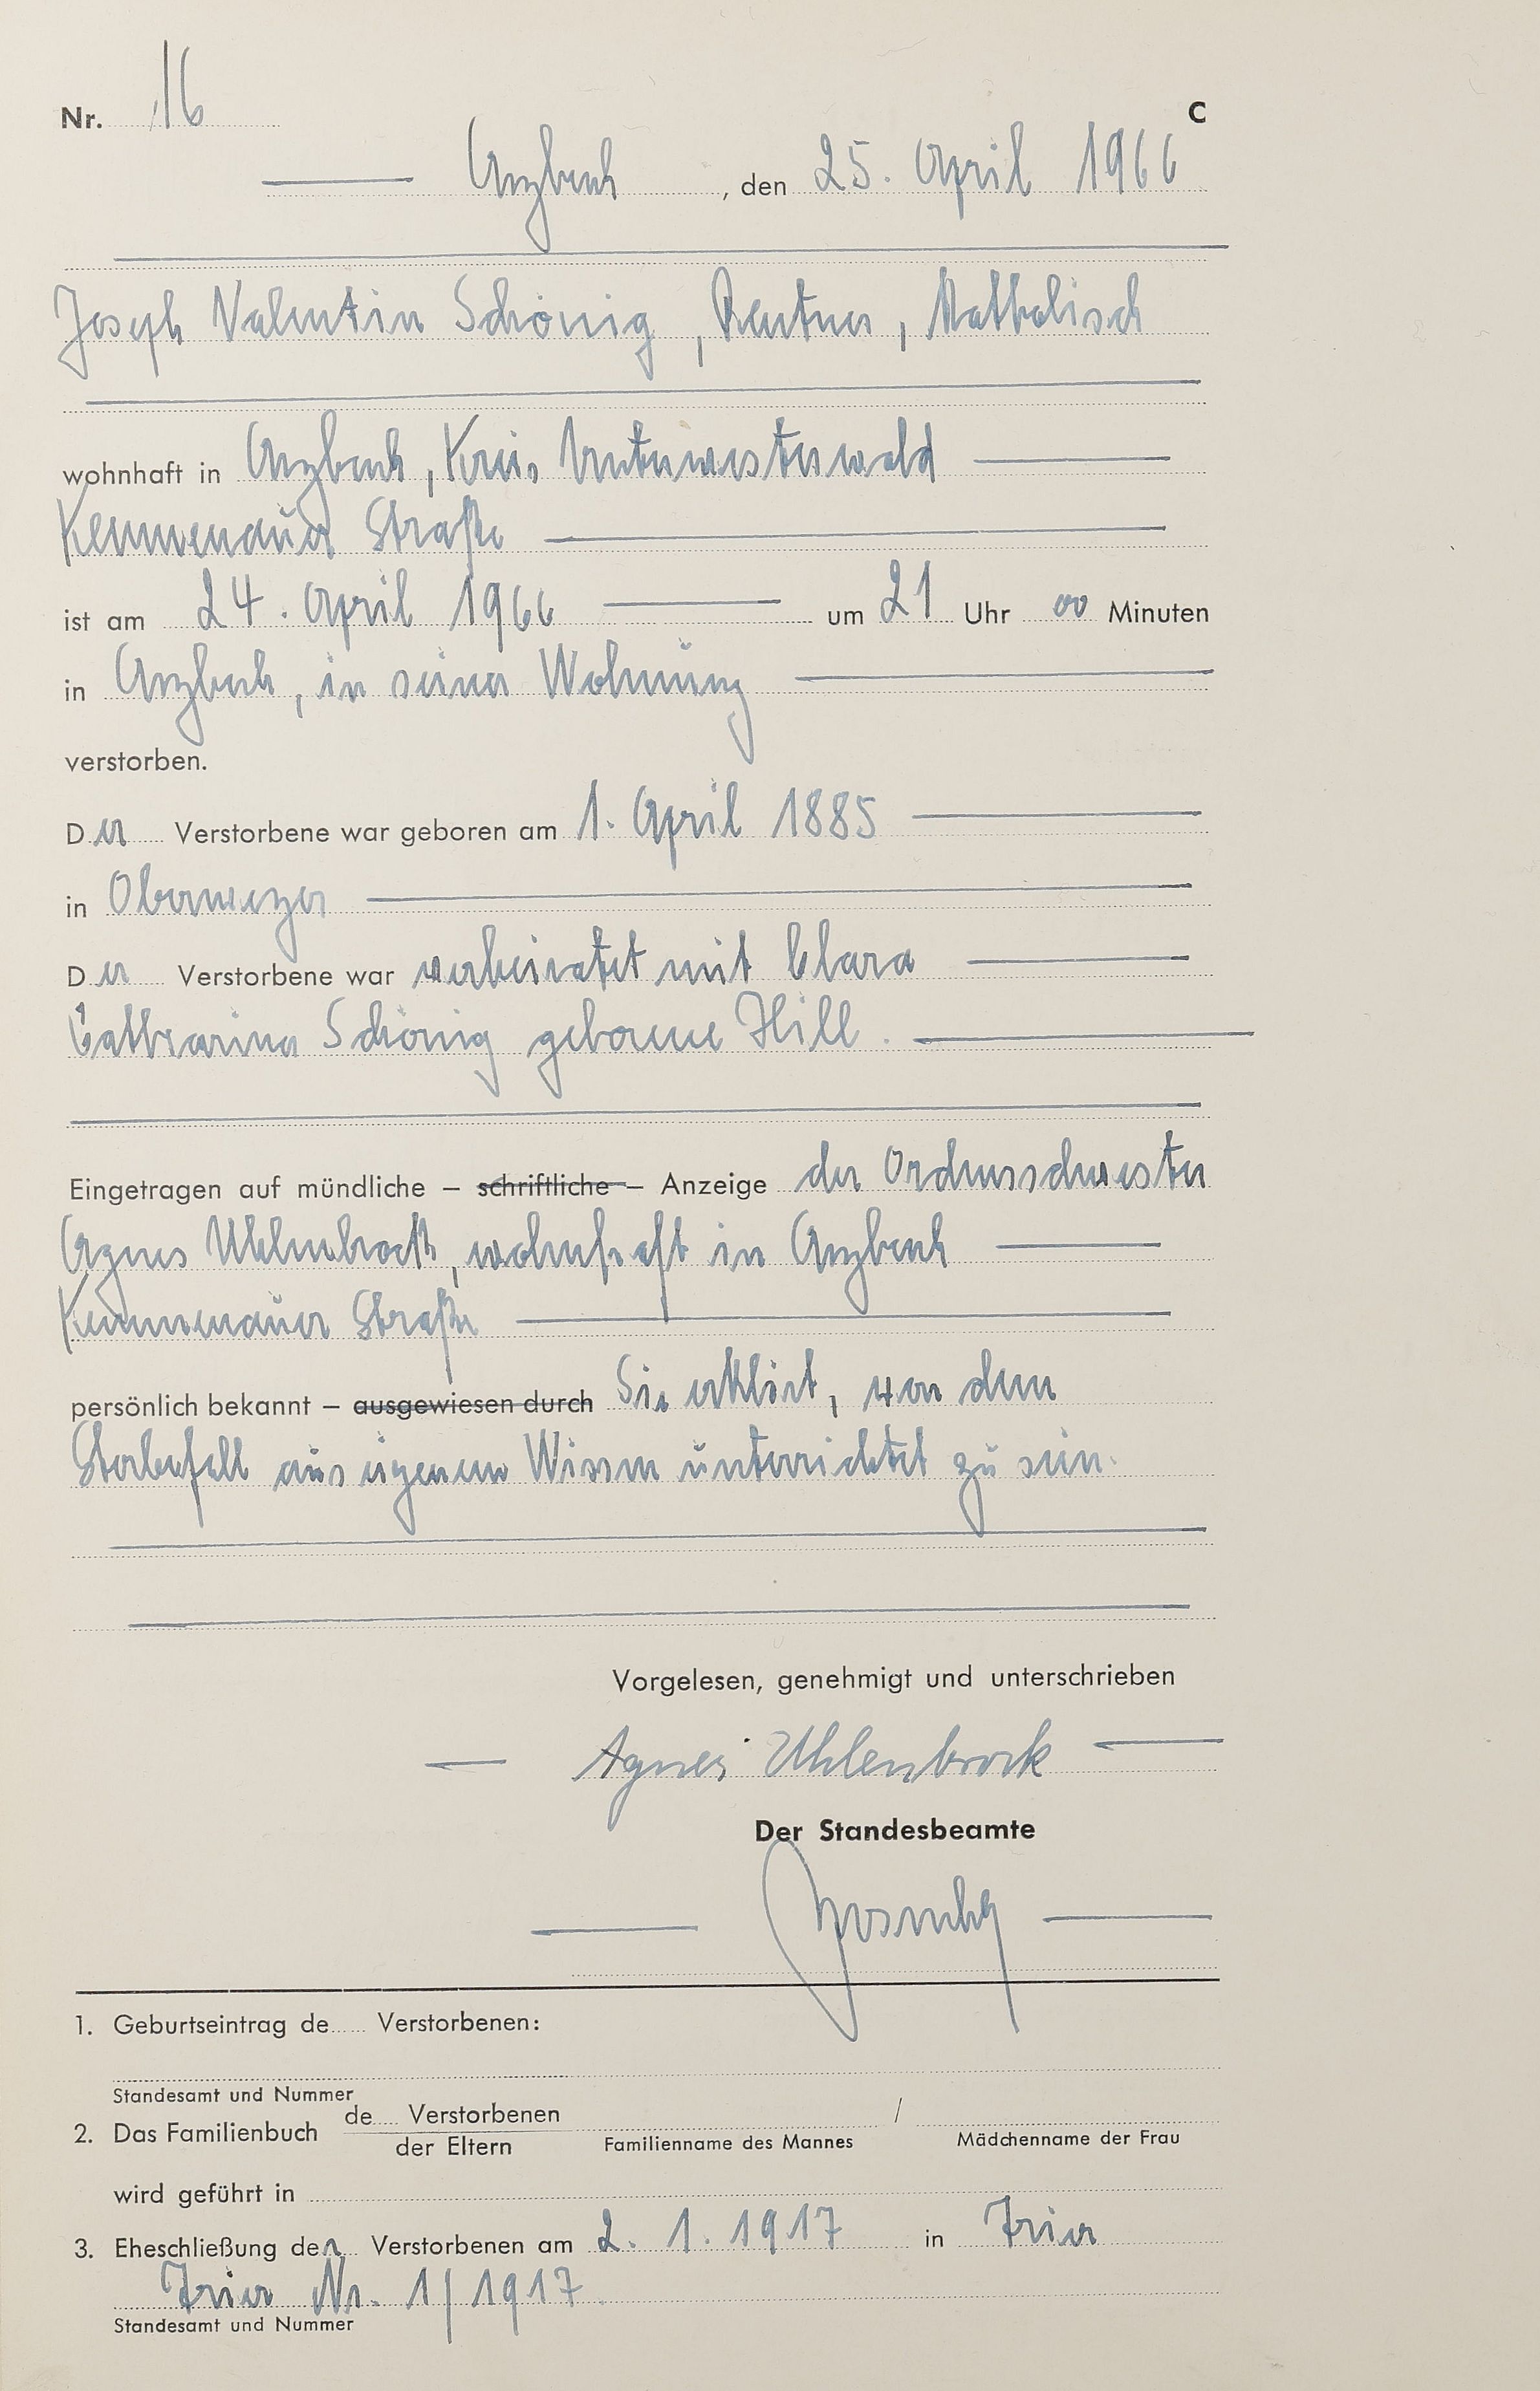 Nr. 16
C
Arzbach, den 25. April 1966
Joseph Valentin Schönig, Rentner, Katholisch
wohnhaft in Arzbach, Kreis Unterwesterwald
Kemmenauer Straße
ist am 24. April 1966 um 21 Uhr 00 Minuten
in Arzbach, in seiner Wohnung
verstorben.
Der Verstorbene war geboren am 1. April 1885
in Oberweyer
Der Verstorbene war verheiratet mit Clara
Catharina Schönig geborene Hill.
Eingetragen auf mündliche – schriftliche – Anzeige der Ordensschwester
Agnes Uhlenbrock, wohnhaft in Arzbach
Kemmenauer Straße
persönlich bekannt – ausgewiesen durch Sie erklärt, von dem
Sterbefall aus eigenem Wissen unterrichtet zu sein.
Vorgelesen, genehmigt und unterschrieben
Agnes Uhlenbrock
Der Standesbeamte
1. Geburtseintrag de Verstorbenen:
Standesamt und Nummer
2. Das Familienbuch de Verstorbenen /
der Eltern Familienname des Mannes Mädchenname der Frau
wird geführt in
3. Eheschließung des Verstorbenen am 2. 1. 1917 in Trier
Trier Nr. 1/1917.
Standesamt und Nummer